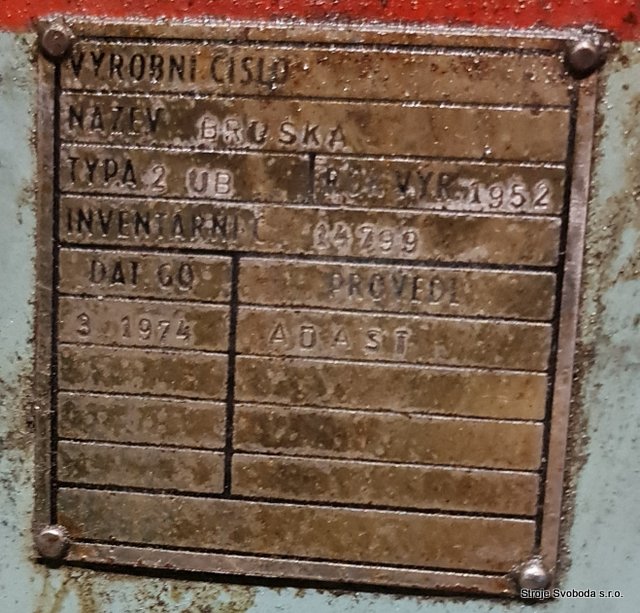 VÝROBNÍ ČÍSLO
NÁZEV BRUSKA
TYP A 2 UB ROK VÝR. 1952
INVENTÁRNÍ Č. 14799
DAT. GO PROVEDL
3 1974 ADAST
Stroje Svoboda s.r.o.